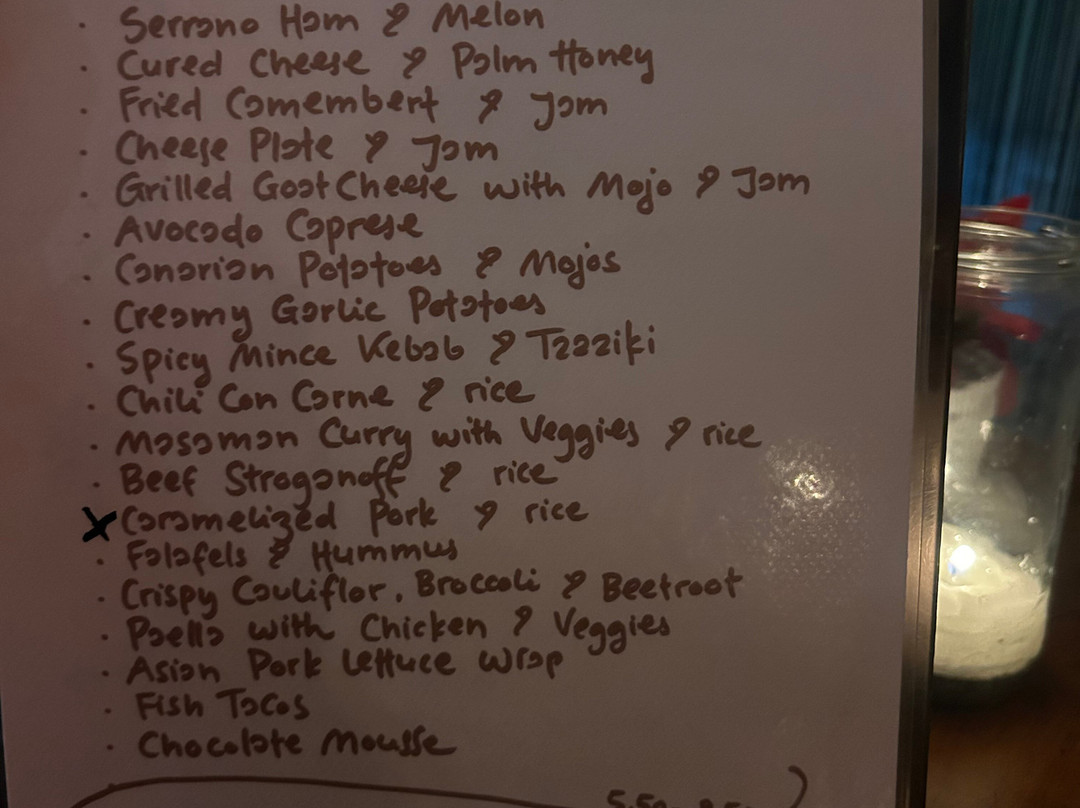 · Serrano Ham & Melon
· Cured Cheese & Palm Honey
· Fried Camembert & Jam
· Cheese Plate & Jam
· Grilled Goat Cheese with Mojo & Jam
· Avocado Caprese
· Canarian Potatoes & Mojos
· Creamy Garlic Potatoes
· Spicy Mince Kebab & Tzaziki
· Chili Con Carne & rice
· Masaman Curry with Veggies & rice
· Beef Stroganoff & rice
X Caramelized Pork & rice
· Falafels & Hummus
· Crispy Cauliflor, Broccoli & Beetroot
· Paella with Chicken & Veggies
· Asian Pork Lettuce Wrap
· Fish Tacos
· Chocolate Mousse